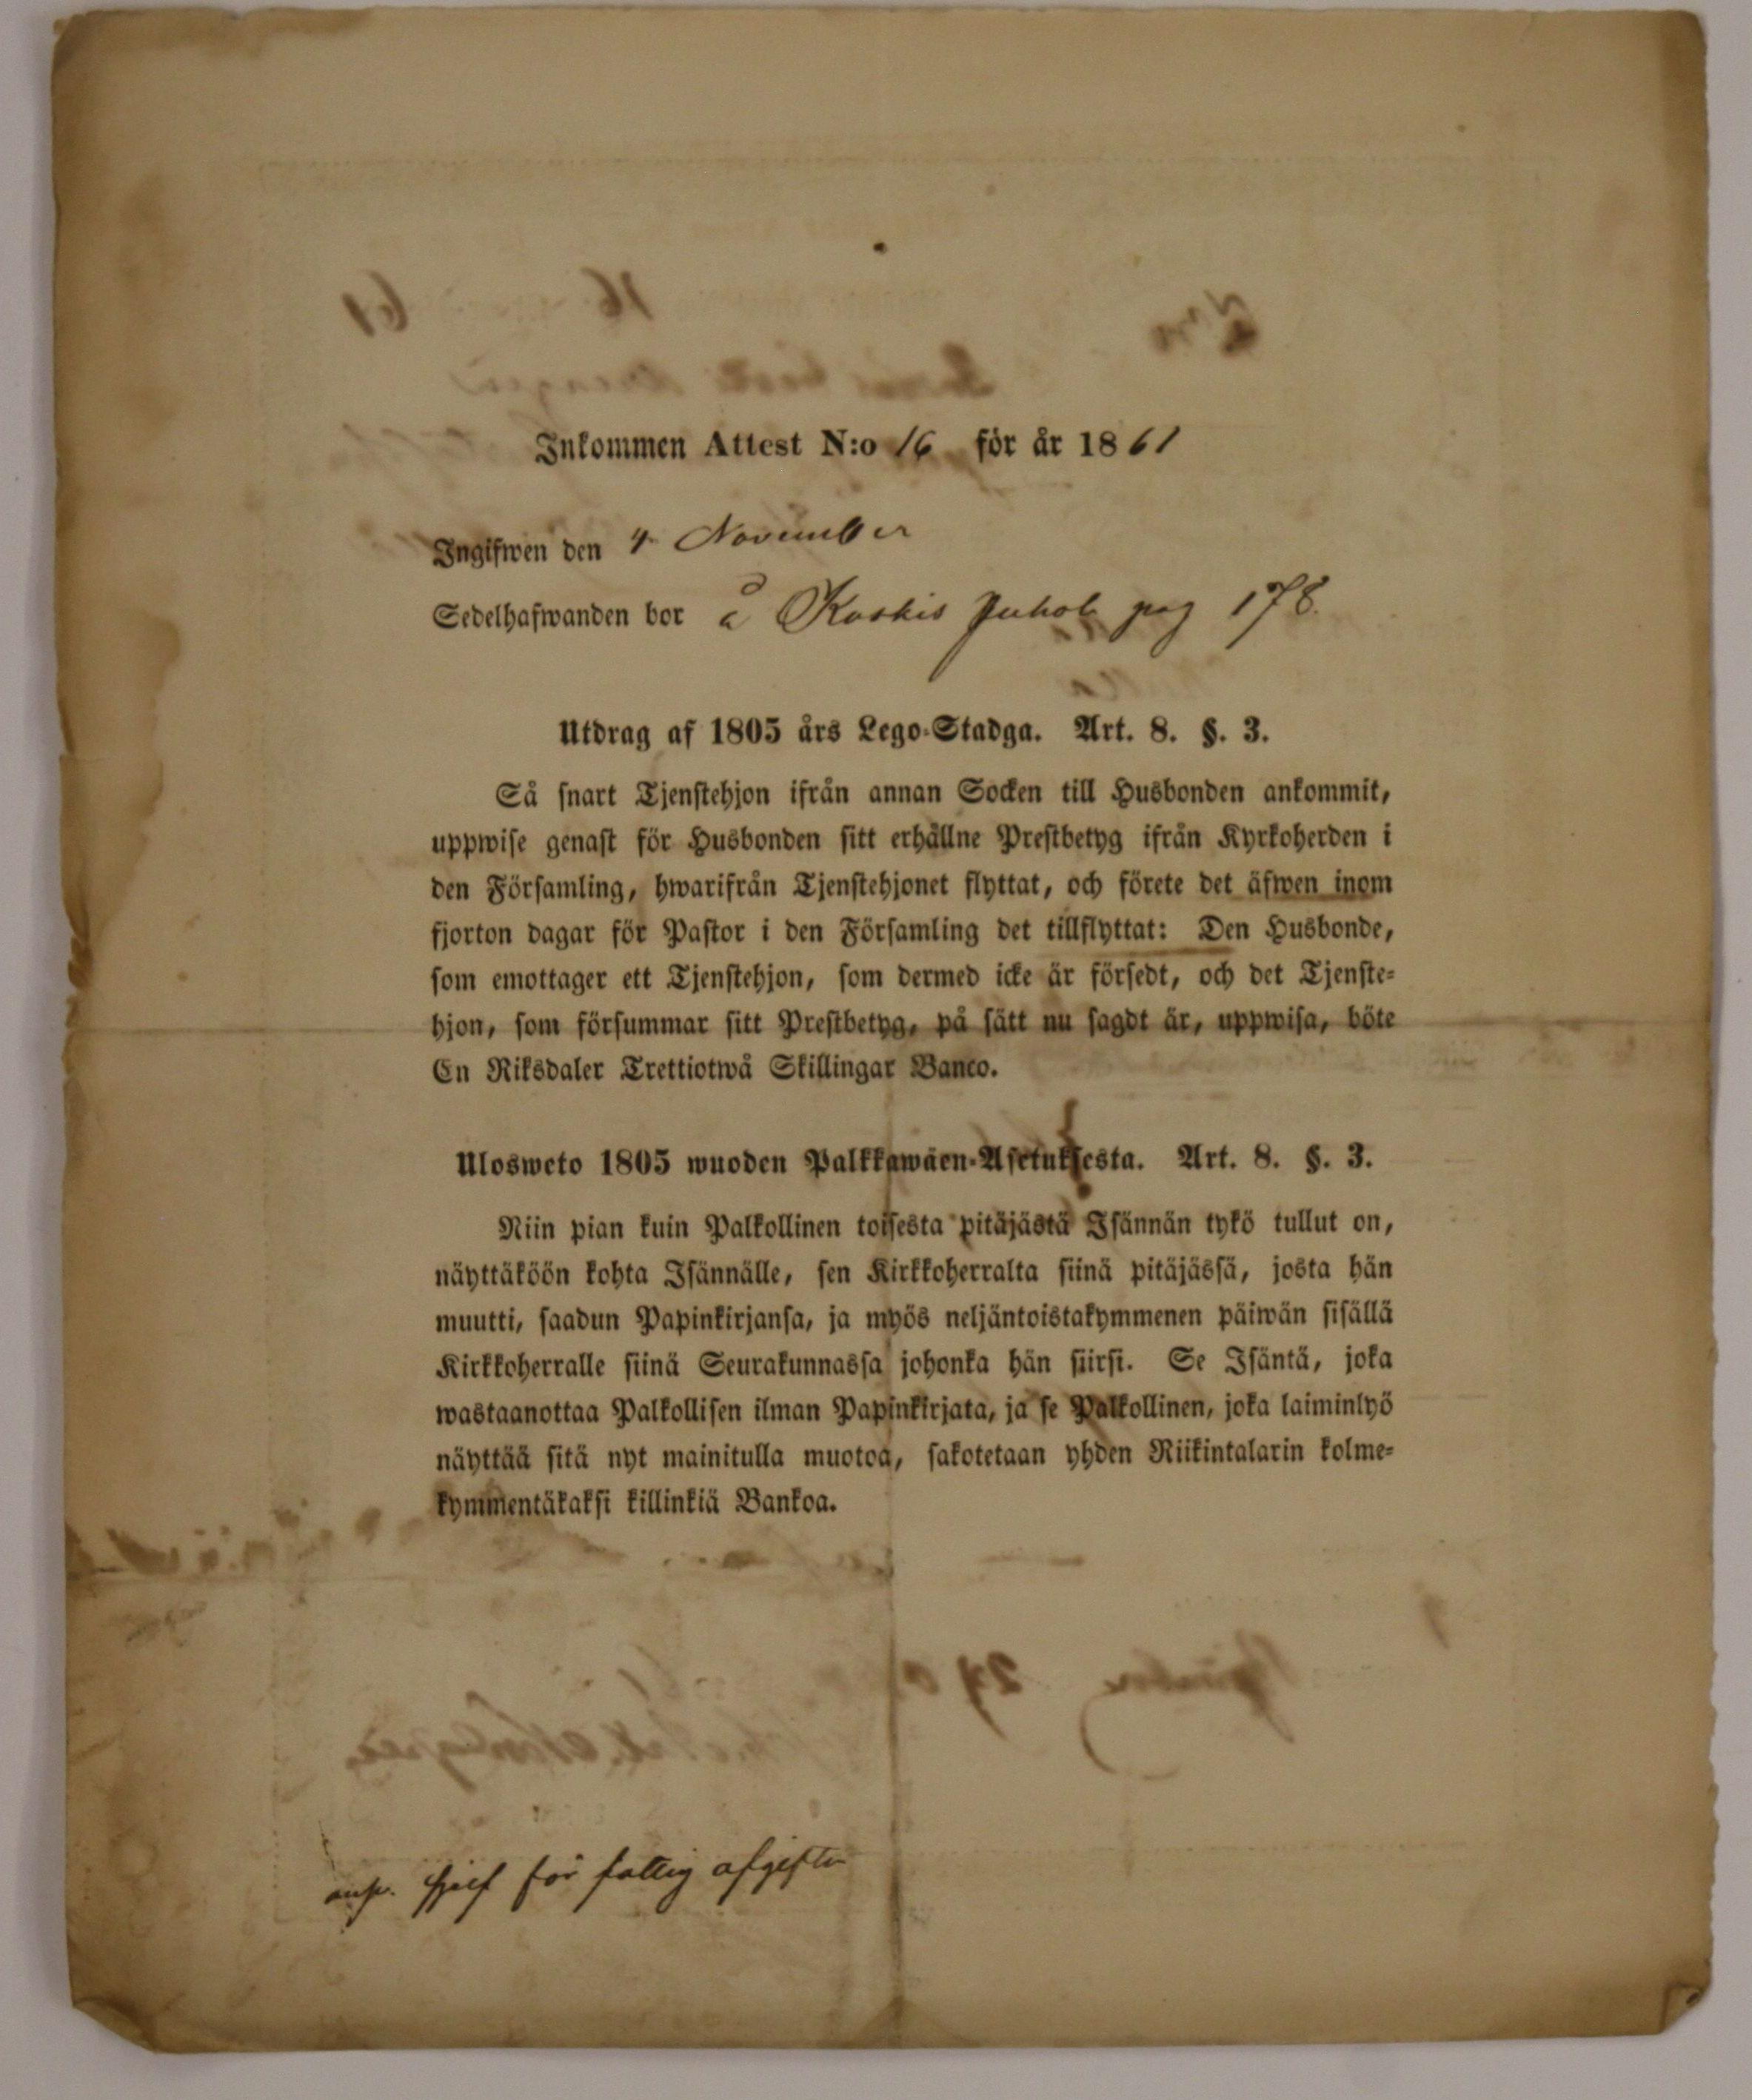 Inkommen Attest N:o 16 för år 1861
Ingifwen den 4 November
Sedelhafwanden bor å Koskis Juhola pag 178.
Utdrag af 1805 års Lego-Stadga. Art. 8. §. 3.
Så snart Tjenstehjon ifrån annan Socken till Husbonden ankommit,
uppwise genast för Husbonden sitt erhållne Prestbetyg ifrån Kyrkoherden i
den Församling, hwarifrån Tjenstehjonet flyttat, och förete det äfwen inom
fjorton dagar för Pastor i den Församling det tillflyttat: Den Husbonde,
som emottager ett Tjenstehjon, som dermed icke är försedt, och det Tjenste-
hjon, som försummar sitt Prestbetyg, på sätt nu sagdt är, uppwisa, böte
En Riksdaler Trettiotwå Skillingar Banco.
Ulosweto 1805 wuoden Palkkawäen-Asetuksesta. Art. 8. §. 3.
Niin pian kuin Palkollinen toisesta pitäjästä Isännän tykö tullut on,
näyttäköön kohta Isännälle, sen Kirkkoherralta siinä pitäjässä, josta hän
muutti, saadun Papinkirjansa, ja myös neljäntoistakymmenen päiwän sisällä
Kirkkoherralle siinä Seurakunnassa johonka hän siirsi. Se Isäntä, joka
wastaanottaa Palkollisen ilman Papinkirjata, ja se Palkollinen, joka laiminlyö
näyttää sitä nyt mainitulla muotoa, sakotetaan yhden Riikintalarin kolme-
kymmentäkaksi killinkiä Bankoa.
sjelf för fattig afgiften